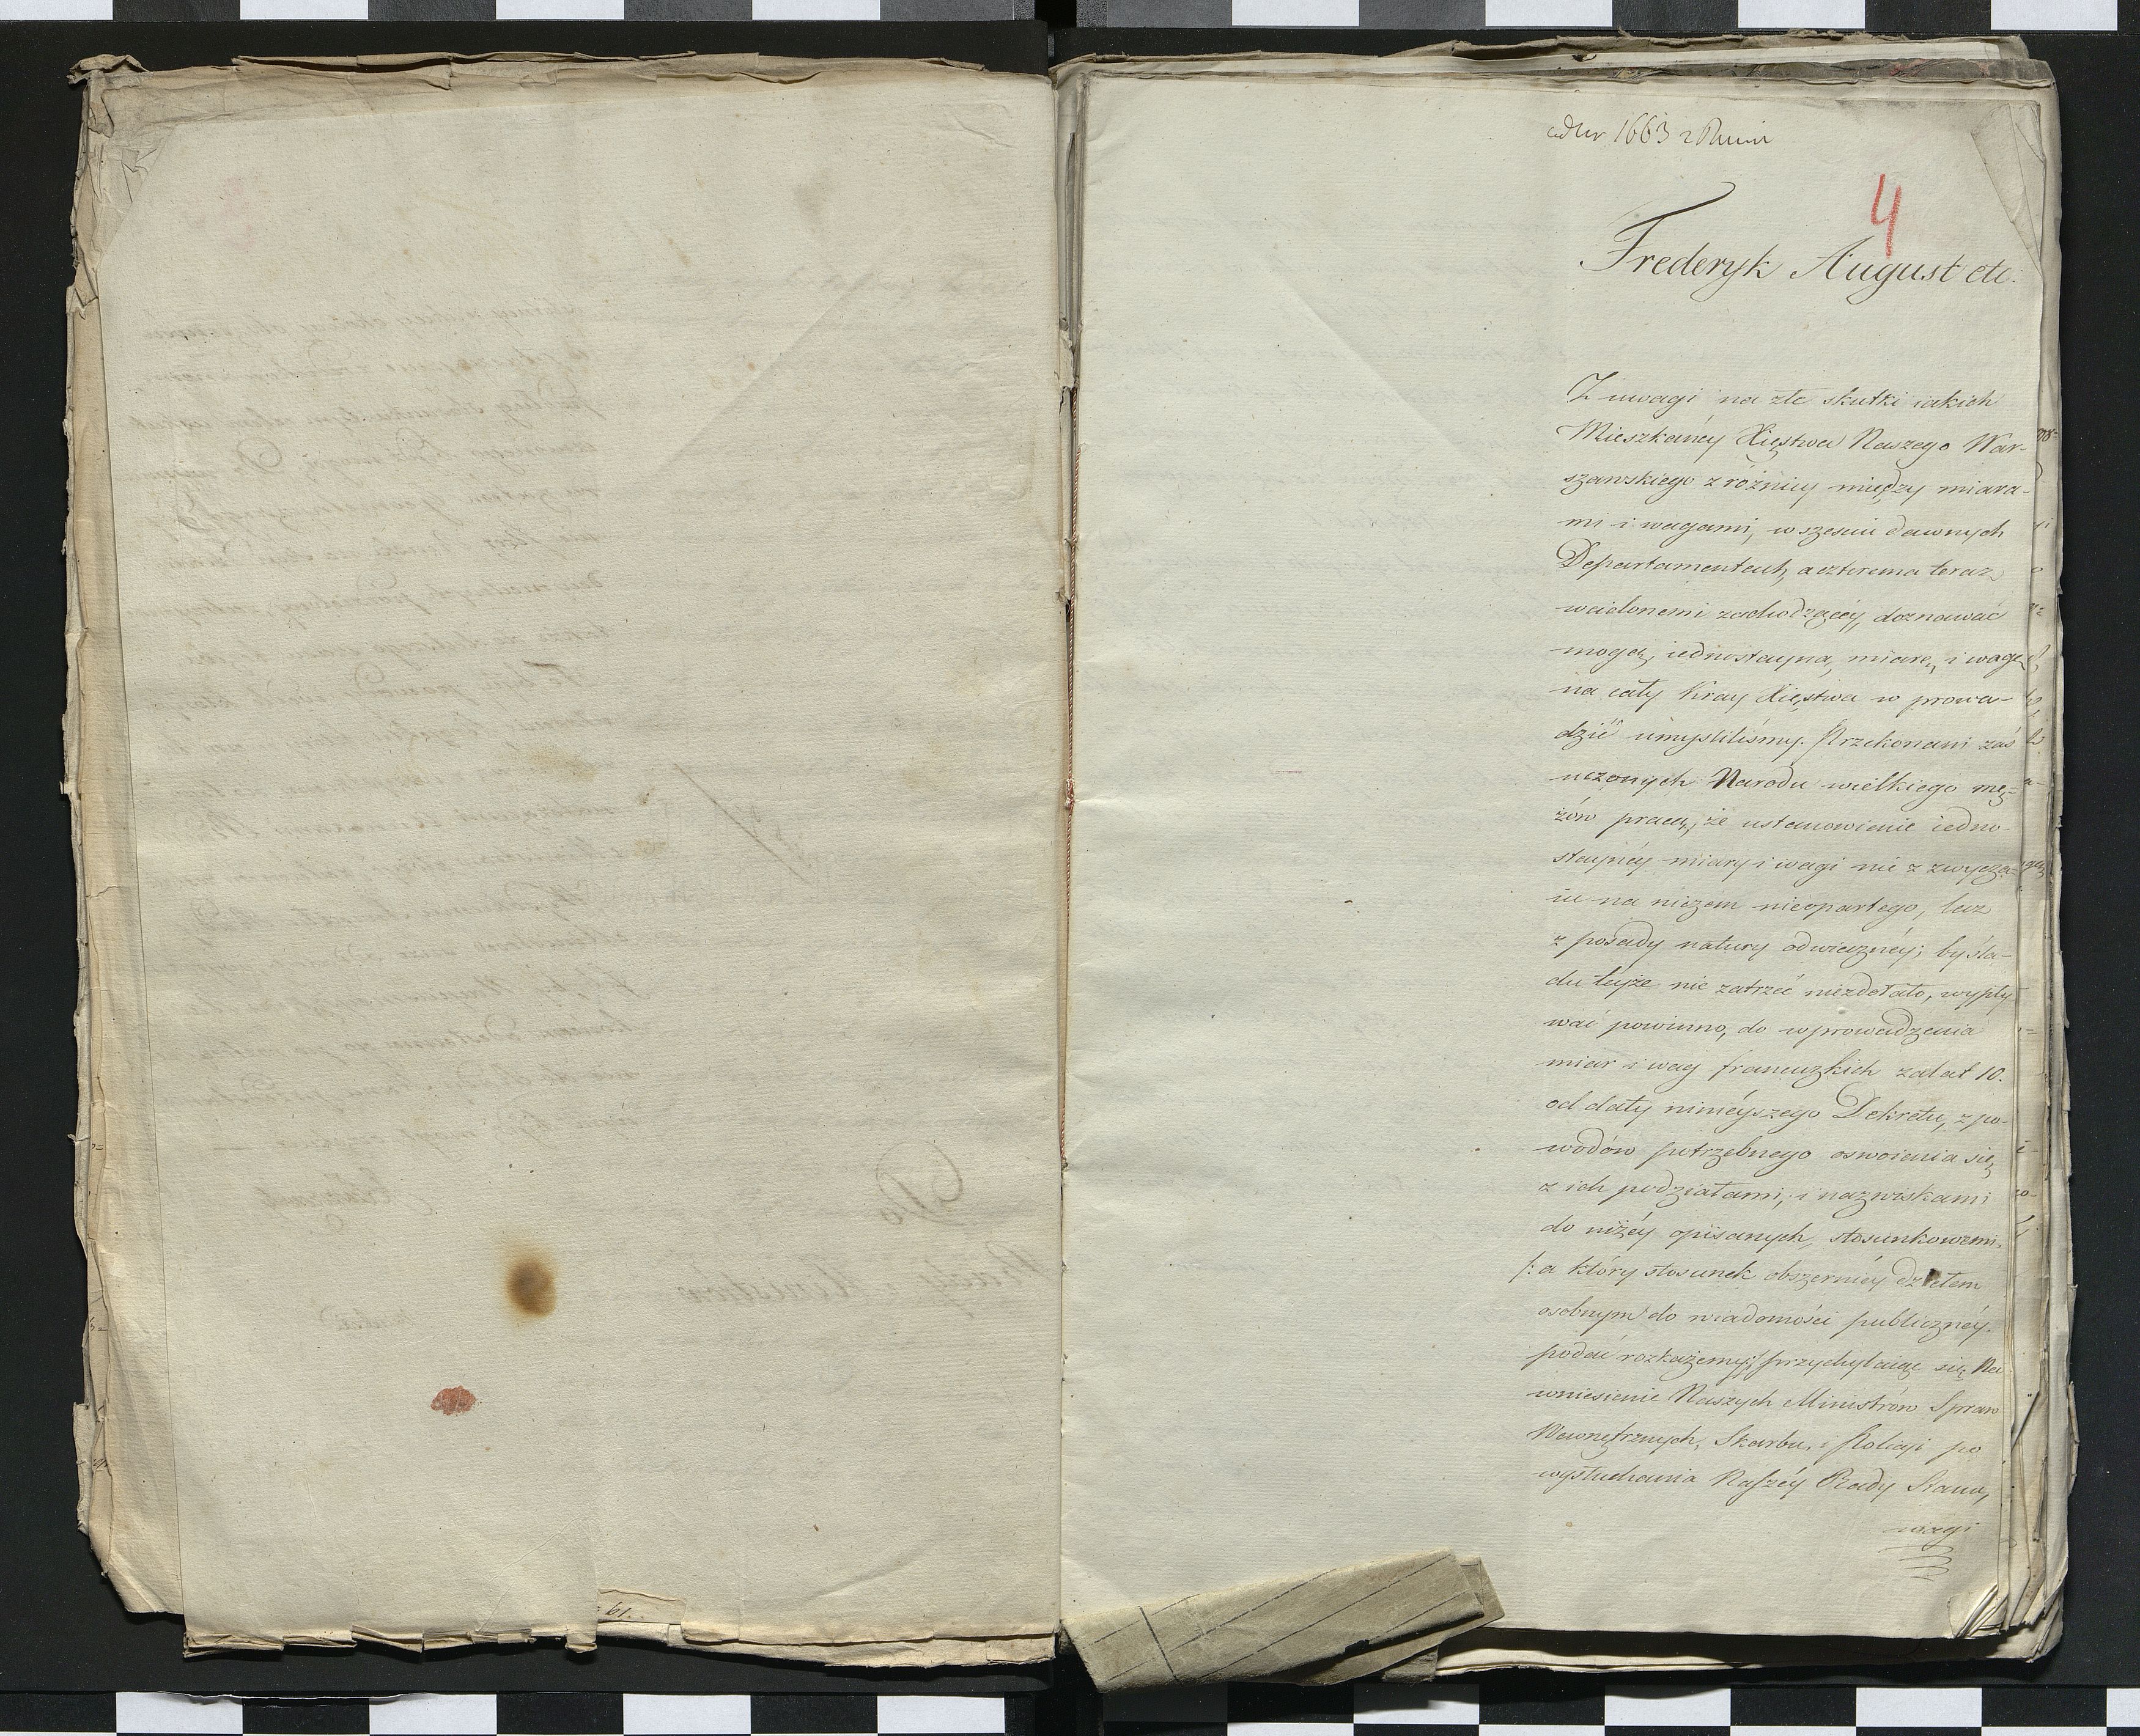 1663
4
Frederyk August etc.
Z uwagi na złe skutki iakich
Mieszkańcy Xięstwa Naszego War-
szawskiego z różnicy między miara-
mi i wagami, w sześciu dawnych
Departamentach, a czterema teraz
wcielonemi zachodzącéy, doznawać
mogą, iednostayną, miarę, i wagę
na cały Kray Xięstwa w prowa-
dzić umyśliliśmy. Przekonani zaś
uczonych Narodu wielkiego mę-
żów pracą, że ustanowienie iedno-
staynéy miary i wagi nie z zwycza-
iu na niczem nieopartego, lecz
z posady natury odwiecznéy; by śla-
du teyże nie zatrzeć niezdołało, wypły-
wać powinno, do wprowadzenia
miar i wag francuzkich za lat 10.
od daty ninieyszego Dekretu, z po-
wodów potrzebnego oswoienia się,
z ich podziałami, i nazwiskami
do niżéy opisanych, stosunkowemi,
/: a który stosunek obszerniéy dziełem
osobnym do wiadomości publicznéy.
podać rozkażemy :/ przychylaiąc się Na
wniesienie Naszych Ministrów Spraw
Wewnętrznych, Skarbu, i Policyi po
wysłuchania Naszéy Rady Stanu,
wagi
61.